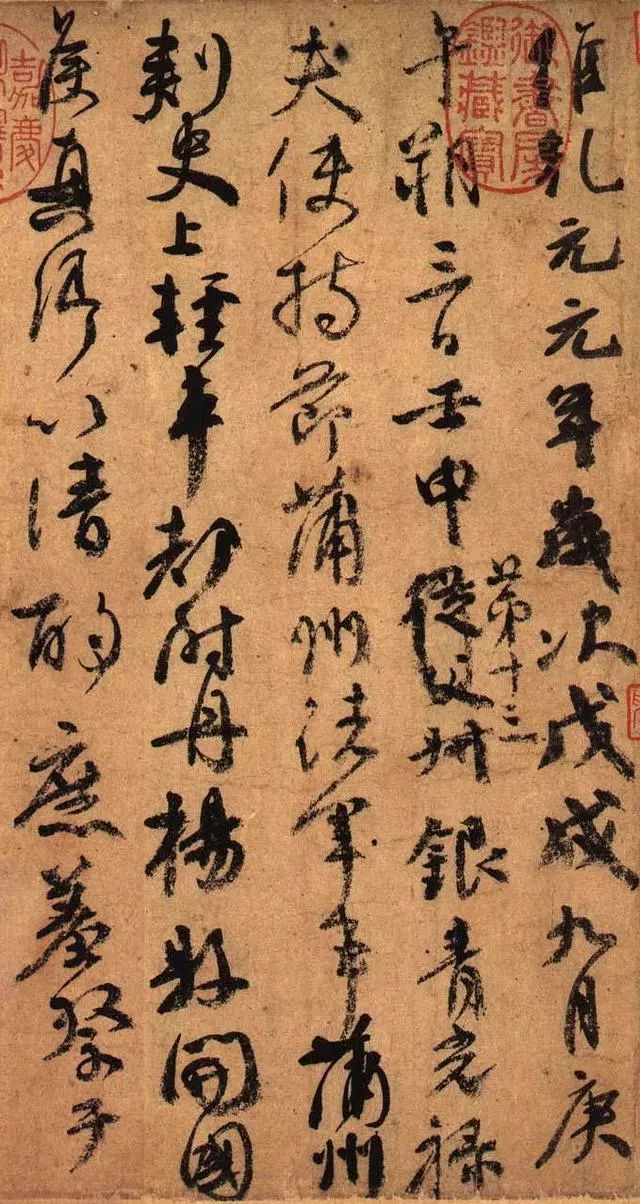 維乾元元年歲次戊戌九月庚
午朔三日壬申第十三從父叔銀青光祿
夫使持節蒲州諸軍事蒲州
刺史上輕車都尉丹楊縣開國
侯真卿以清酌庶羞祭于
御書房鑑藏寶
嘉慶